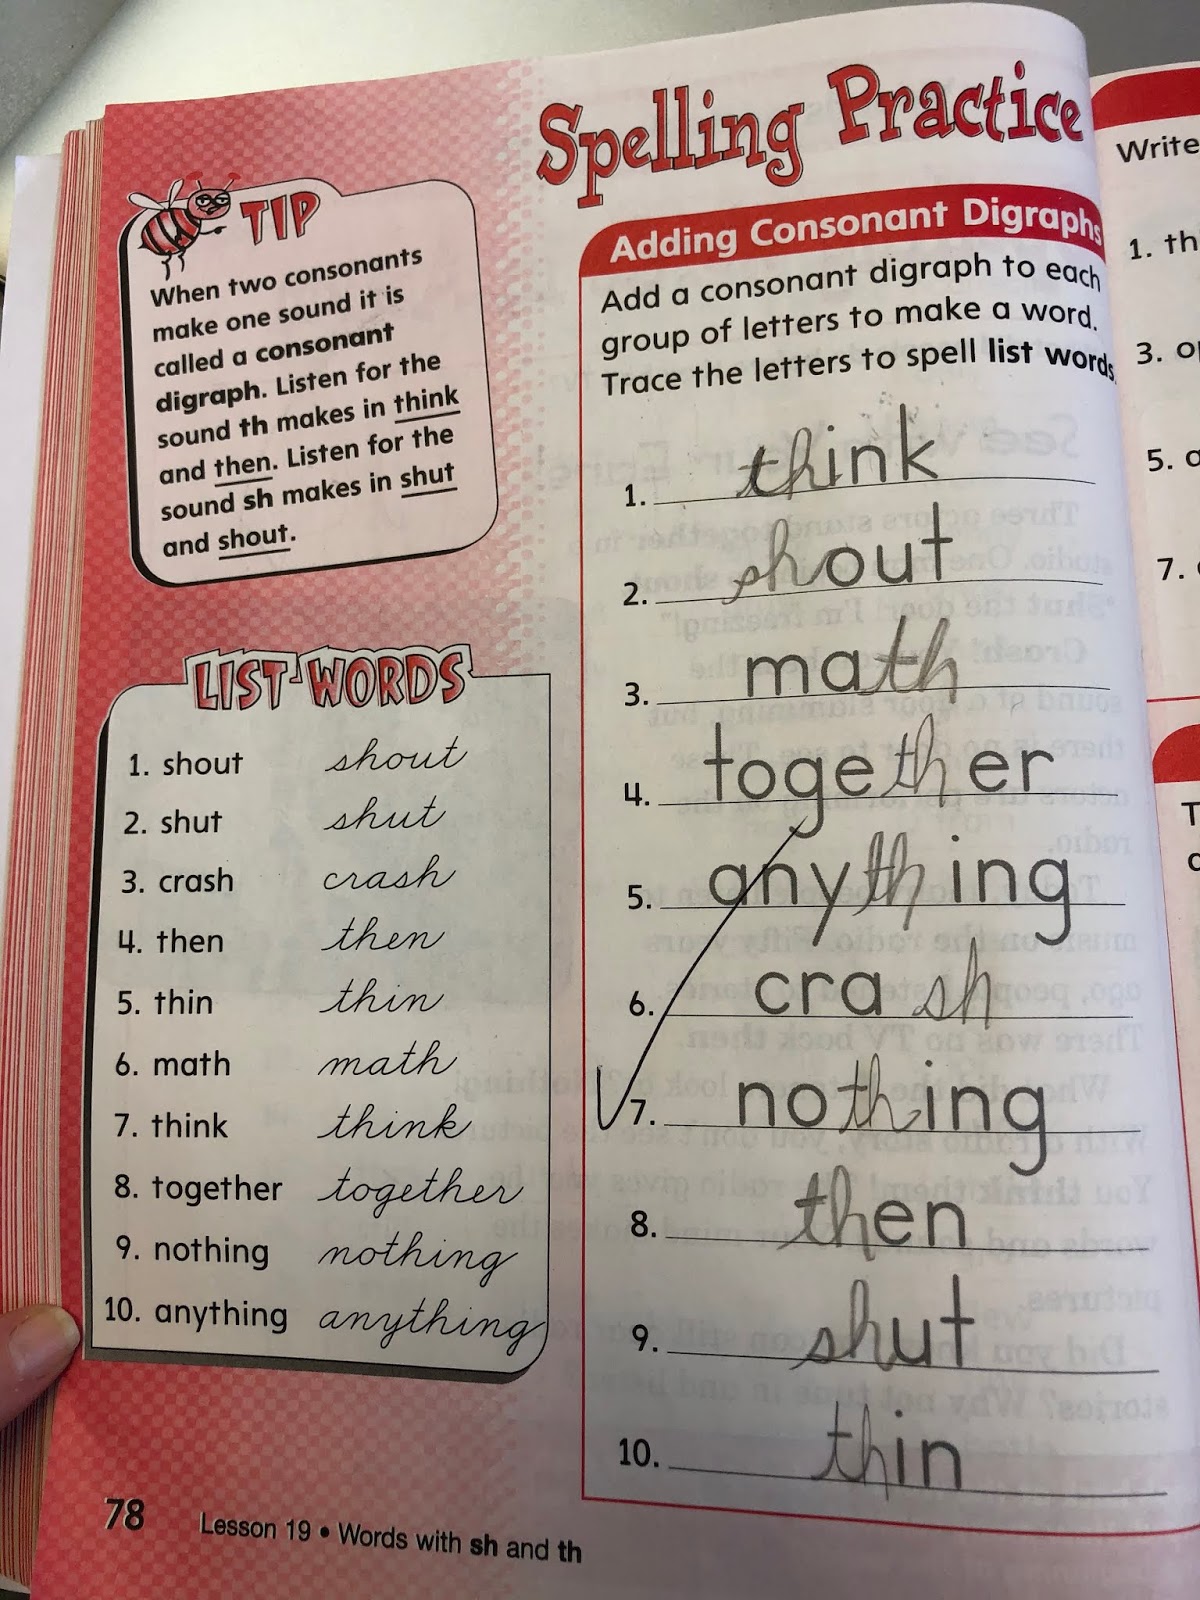 Spelling Practice
TIP
When two consonants
make one sound it is
called a consonant
digraph. Listen for the
sound th makes in think
and then. Listen for the
sound sh makes in shut
and shout.
LIST WORDS
1. shout shout
2. shut shut
3. crash crash
4. then then
5. thin thin
6. math math
7. think think
8. together together
9. nothing nothing
10. anything anything
78 Lesson 19 • Words with sh and th
Adding Consonant Digraphs
Add a consonant digraph to each
group of letters to make a word.
Trace the letters to spell list words
1. think
2. shout
3. math
4. together
5. anything
6. crash
7. nothing
8. then
9. shut
10. thin
Write
1. th
3.
5.
7.